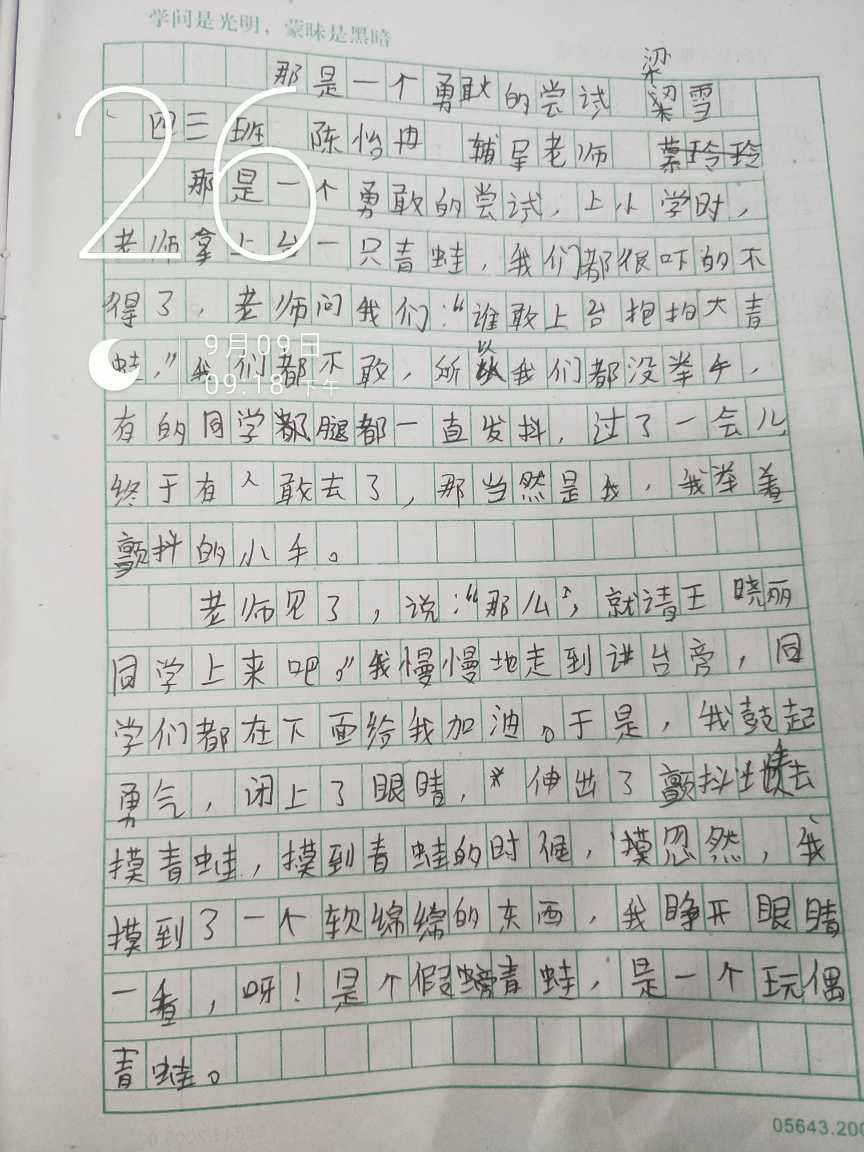 学问是光明，蒙昧是黑暗
那是一个勇敢的尝试 梁
梁雪
四三班 陈怡冉 辅导老师 蔡玲玲
那是一个勇敢的尝试，上小学时，
老师拿上台一只青蛙，我们都很吓的不
得了，老师问我们：“谁敢上台抱抱大青
蛙，”我们都不敢，所以我们都没举手，
有的同学都腿都一直发抖，过了一会儿，
终于有人敢去了，那当然是我，我举着
颤抖的小手。
老师见了，说：“那么”，就请王晓丽
同学上来吧。”我慢慢地走到讲台旁，同
学们都在下面给我加油。于是，我鼓起
勇气，闭上了眼睛，伸出了颤抖手去
摸青蛙，摸到青蛙的时候，摸忽然，我
摸到了一个软绵绵的东西，我睁开眼睛
一看，呀！是个假螃青蛙，是一个玩偶
青蛙。
26
9月09日
09:18 下午
05643.200